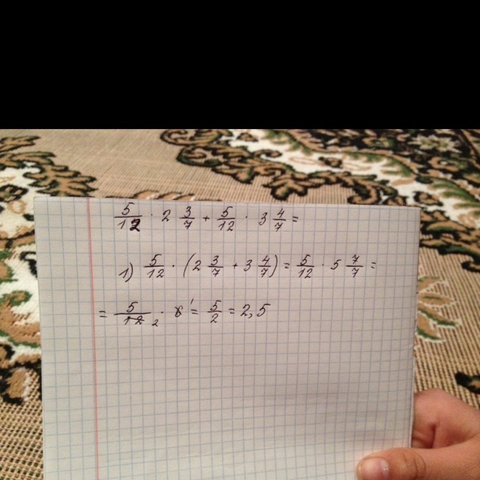 5/12 · 2 3/7 + 5/12 · 3 4/7 =
1) 5/12 · (2 3/7 + 3 4/7) = 5/12 · 5 7/7 =
= 5/12 2 · 6 1 = 5/2 = 2,5